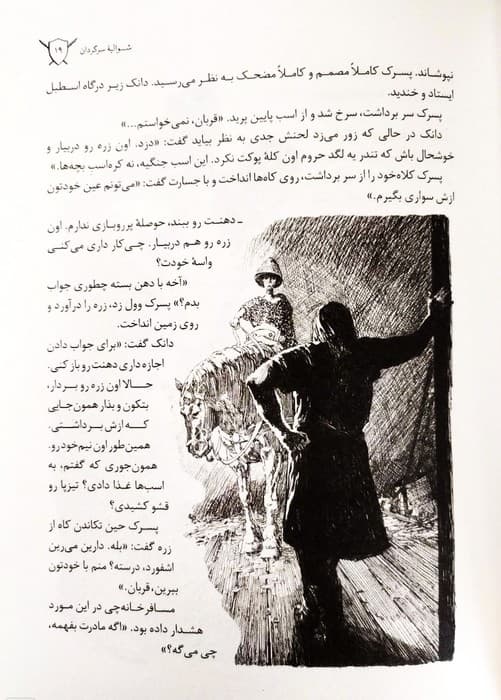 شوالیهٔ سرگردان
۱۹
نپوشاند. پسرک کاملاً مصمم و کاملاً مضحک به نظر می‌رسید. دانک زیر درگاه اسطبل
ایستاد و خندید.
پسرک سر برداشت، سرخ شد و از اسب پایین پرید. «قربان، نمی‌خواستم...»
دانک در حالی که زور می‌زد لحنش جدی به نظر بیاید گفت: «دزد. اون زره رو دربیار و
خوشحال باش که تندر یه لگد حروم اون کلهٔ پوکت نکرد. این اسب جنگیه، نه کره‌اسب بچه‌ها.»
پسرک کلاه‌خود را از سر برداشت، روی کاه‌ها انداخت و با جسارت گفت: «می‌تونم عین خودتون
ازش سواری بگیرم.»
ـ دهنت رو ببند، حوصلهٔ پرروبازی ندارم. اون
زره رو هم دربیار. چی‌کار داری می‌کنی
واسهٔ خودت؟
«آخه با دهن بسته چطوری جواب
بدم؟» پسرک وول زد، زره را درآورد و
روی زمین انداخت.
دانک گفت: «برای جواب دادن
اجازه داری دهنت رو باز کنی.
حالا اون زره رو بردار،
بتکون و بذار همون‌جایی
که ازش برداشتی.
همین‌طور اون نیم‌خود رو.
همون‌جوری که گفتم، به
اسب‌ها غذا دادی؟ تیزپا رو
قشو کشیدی؟
پسرک حین تکاندن کاه از
زره گفت: «بله. دارین می‌رین
اشفورد، درسته؟ منم با خودتون
ببرین، قربان.»
مسافرخانه‌چی در این مورد
هشدار داده بود. «اگه مادرت بفهمه،
چی می‌گه؟»